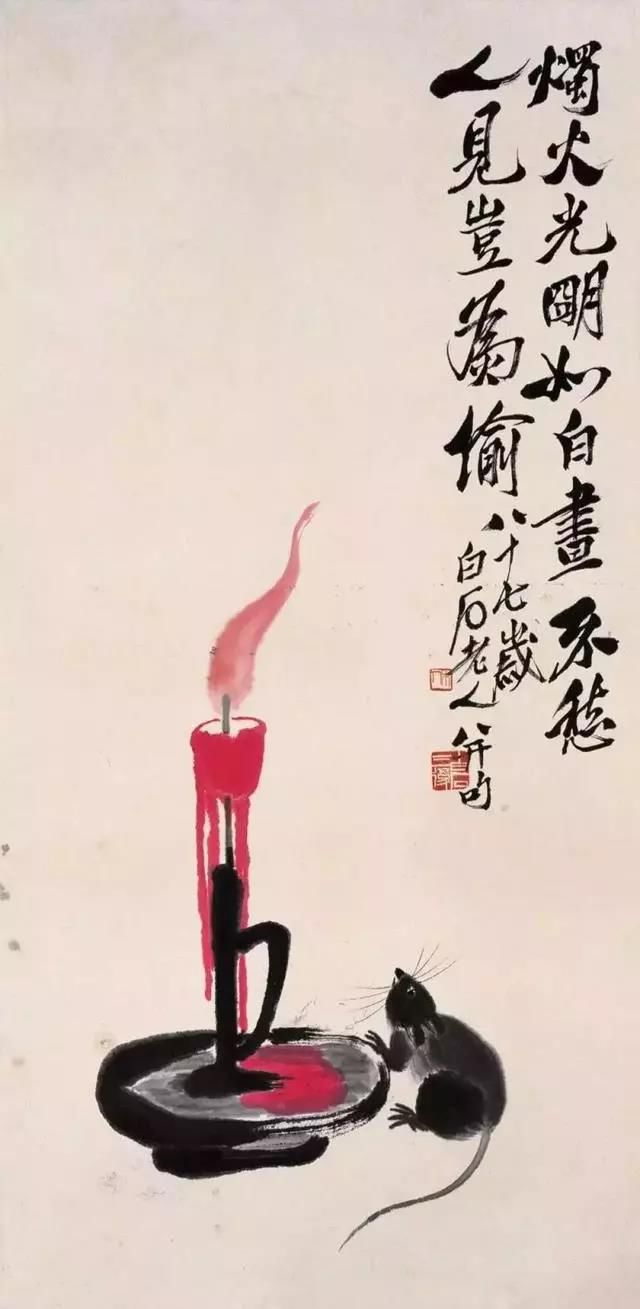 燭火光朙如白晝不愁
人見豈爲偷
八十七歲
白石老人并句